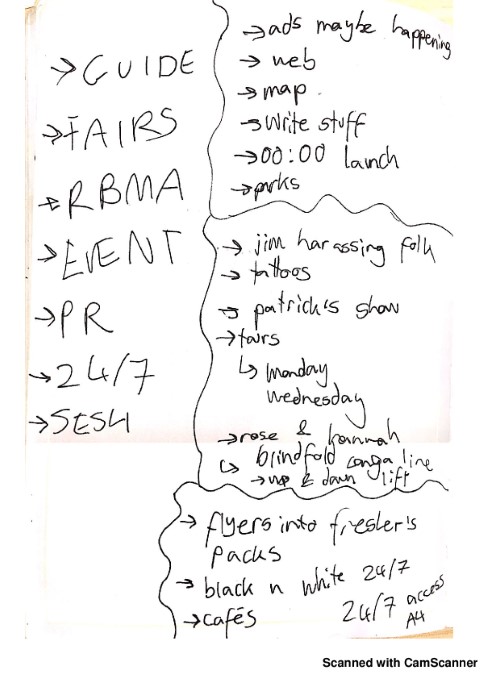 →GUIDE
→FAIRS
→RBMA
→EVENT
→PR
→24/7
→SESH
→ads maybe happening
→web
→map.
→write stuff
→00:00 launch
→jim harassing folk
→tattoos
→patrick's show
→fairs
↳monday
wednesday
→rose & hannah
↳blindfold conga line
→up & down lift
→flyers into fresher's
packs
→black n white 24/7
→cafés
24/7 access
A4
Scanned with CamScanner